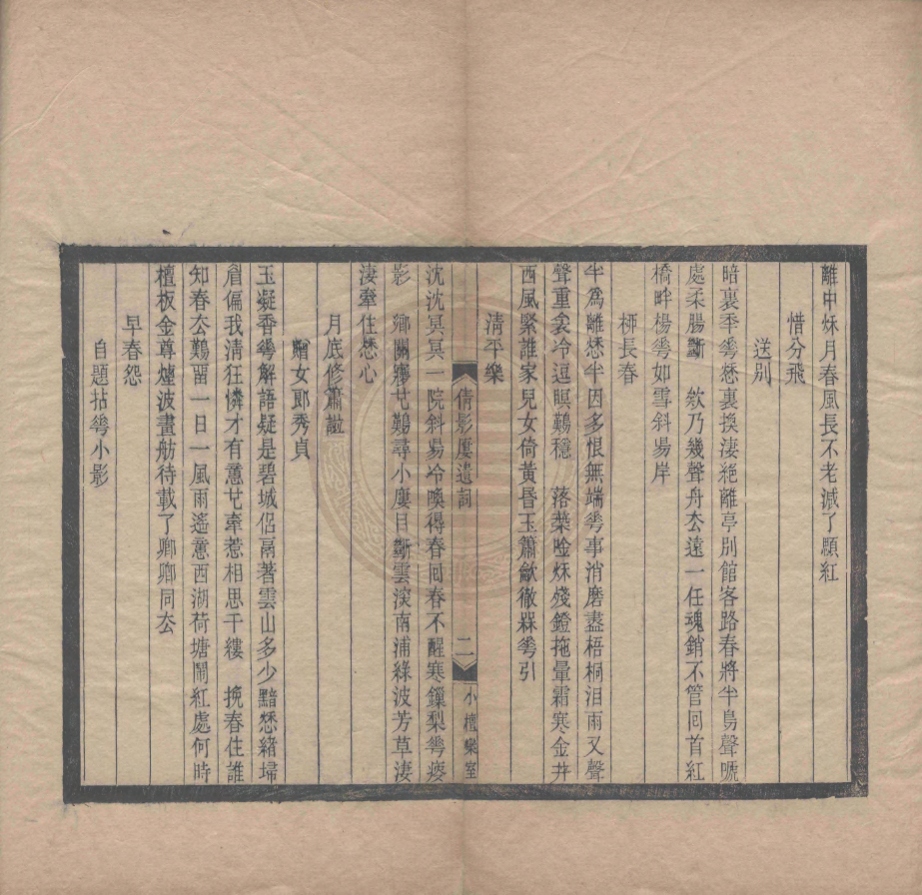 離中秌月春風長不老減了顋紅
惜分飛
送別
暗裏季𠌶愁裏換淒絕離亭別館客路春將半鳥聲嗁
處柔腸斷　欸乃幾聲舟去遠一任魂銷不管回首紅
橋畔楊𠌶如雪斜昜岸
桺長春
半爲離愁半因多恨無端𠌶事消磨盡梧桐泪雨又聲
聲重衾冷逗瞑鷄穩　落葉唫秌殘鐙拖暈霜寒金井
西風緊誰家兒女倚黃昏玉簫歙徹𠌶引
清平樂
倩影廔遺詞
二
小檀欒室
沈沈冥冥一院斜昜冷喚得春回春不醒寒鏁梨𠌶瘦
影　鄉關㝱也難尋小廔目斷雲深南浦綠波芳草淒
淒牽住愁心
月底修簫譜
贈女郎秀貞
玉凝香𠌶解語疑是碧城侶鬲著雲山多少黯愁緒埽
眉偏我清狂憐才有意也牽惹相思千縷　挽春住誰
知春去難畱一日一風雨遙意西湖荷塘鬧紅處何時
檀板金尊煙波畫舫待載了卿卿同去
早春怨
自題拈𠌶小影